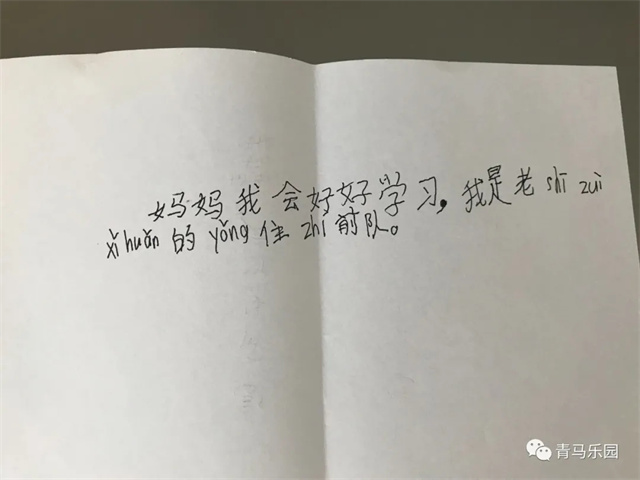 妈妈我会好好学习，我是老shī zuì
xǐ huān 的 yǒng 住 zhí 前队。
青马乐园